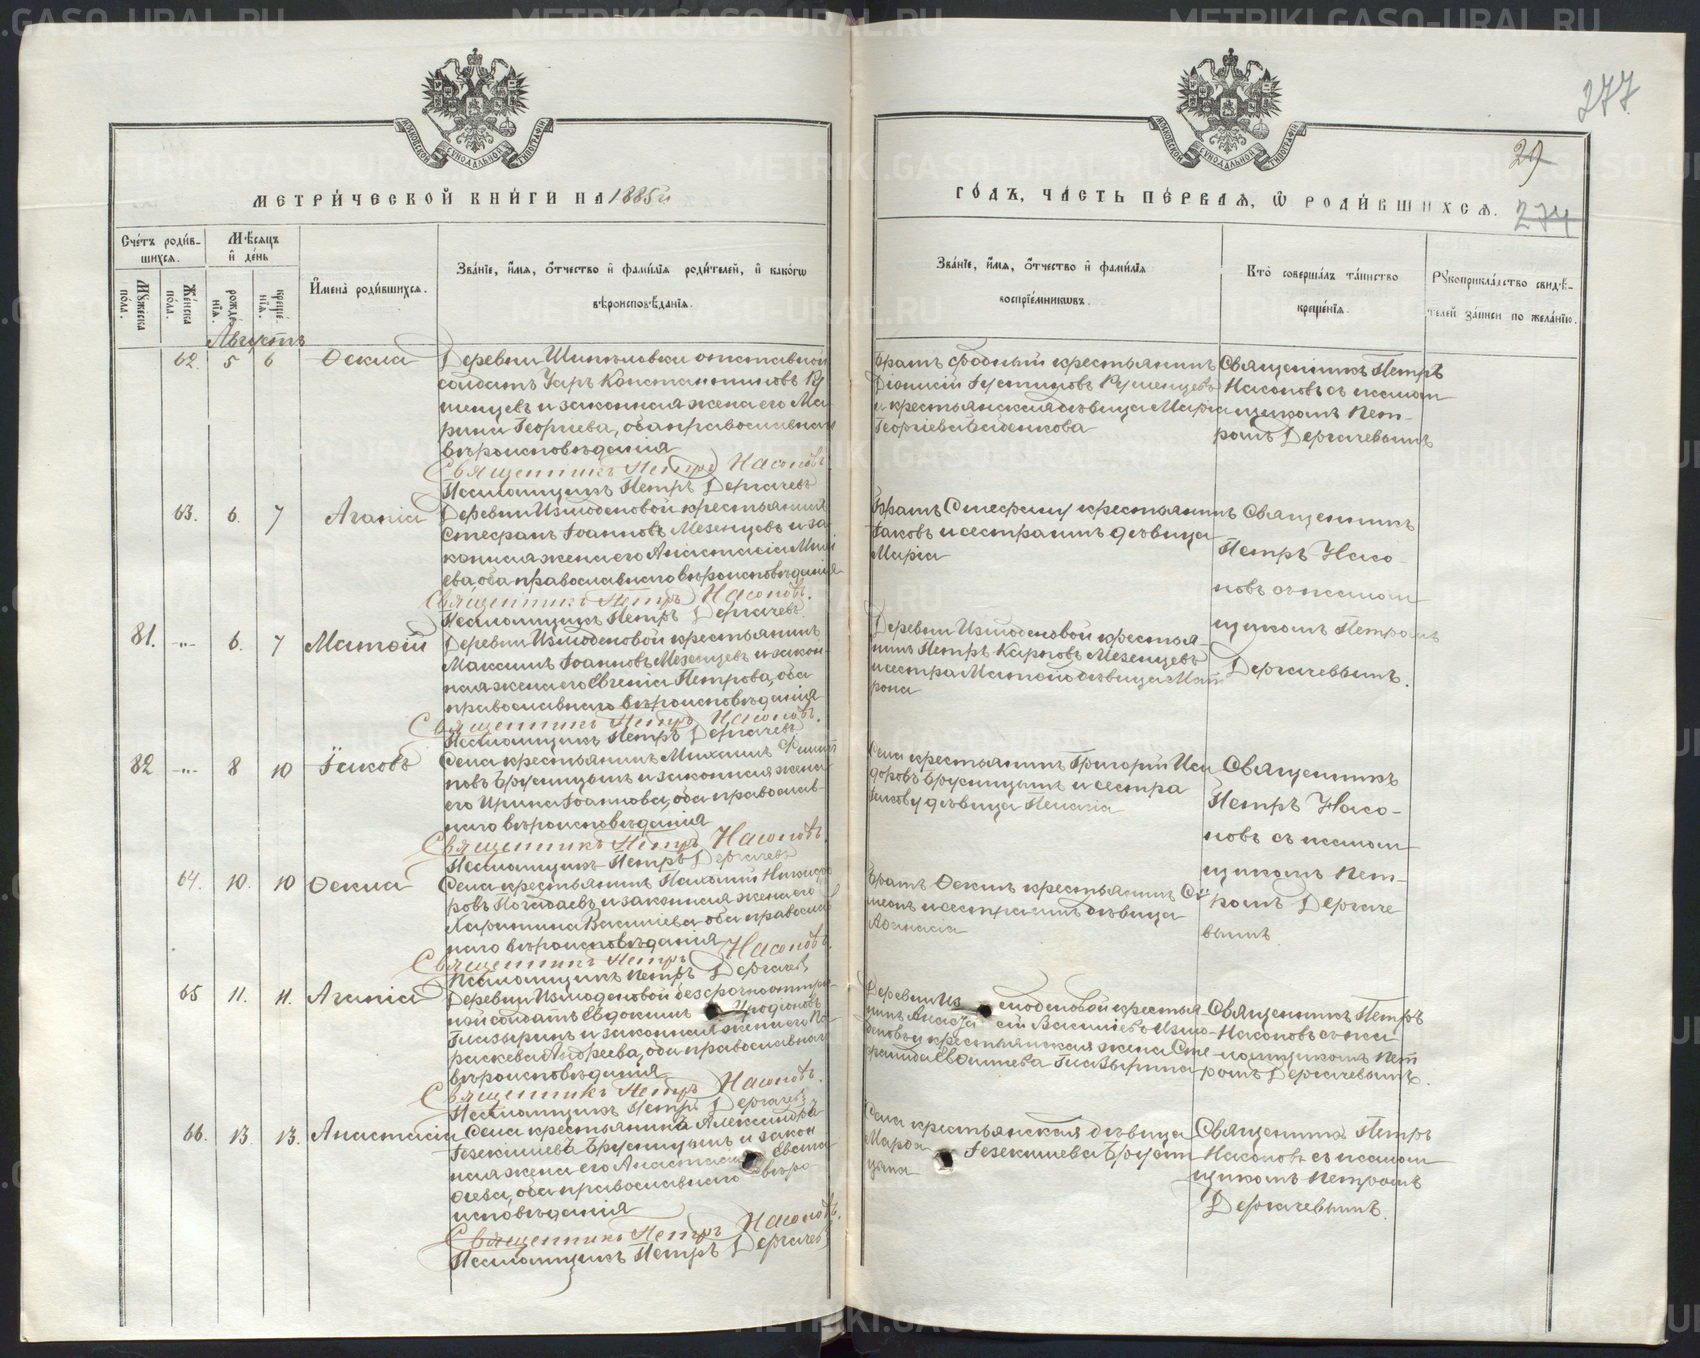 277
29
274
МЕТРИ́ЧЕСКОЙ КНИ́ГИ НА 1885й
ГО́ДЪ, ЧА́СТЬ ПЕ́РВАЯ, Ѡ РОДИ́ВШИХСЯ.
Сче́тъ роди́в-
шихся.
Му́жеска
по́ла.
Же́нска
по́ла.
Мѣ́сяцъ
и҆ де́нь
рожде́-
нїя.
креще́-
нїя.
И҆мена̀ роди́вшихся.
Зва́нїе, и҆́мя, ѻ҆́тчество и҆ фами́лїя роди́телей, и҆ како́гѡ
вѣроисповѣ́данїя.
Зва́нїе, и҆́мя, ѻ҆́тчество и҆ фами́лїя
воспрїе́мниковъ.
Кто̀ соверша́лъ та́инство
креще́нїя.
Рꙋкоприкла́дство свидѣ́-
телей за́писи по жела́нїю.
Августъ
62. 5 6 Ѳекла
Деревни Шипѣловки отставной
солдатъ Уаръ Константиновъ Ку
шенцевъ и законная жена его Ма
рина Георгиева, оба православнаго
вѣроисповѣданія
Священникъ Петръ Насоновъ.
Псаломщикъ Петръ Дергачевъ
братъ сродный крестьянинъ
Діонисій Іустиновъ Кушенцевъ
и крестьянская дѣвица Марія
Георгіева
Священникъ Петръ
Насоновъ съ псалом
щикомъ Пет-
ромъ Дергачевымъ
63. 6. 7 Агапія
Деревни Измоденовой крестьянинъ
Стефанъ Іоанновъ Мезенцевъ и за
конная жена его Анастасія
ева, оба православнаго вѣроисповѣданія
Священникъ Петръ Насоновъ.
Псаломщикъ Петръ Дергачевъ
братъ Стефану крестьянинъ
Іаковъ и сестра имъ дѣвица
Марія
Священникъ
Петръ Насо-
новъ съ псалом
щикомъ Петромъ
Дергачевымъ.
81. -"- 6. 7 Матѳій
Деревни Измоденовой крестьянинъ
Максимъ Іоанновъ Мезенцевъ и закон-
ная жена его Евгенія Петрова, оба
православнаго вѣроисповѣданія
Священникъ Петръ Насоновъ.
Псаломщикъ Петръ Дергачевъ
Деревни Измоденовой крестья-
нинъ Петръ Карповъ Мезенцевъ
и сестра Матѳію дѣвица Мат
рона
82 -"- 8 10 Іаковъ
Села крестьянинъ Михаилъ Филип
повъ Брусницынъ и законная жена
его Ирина Іоаннова, оба православ-
наго вѣроисповѣданія
Священникъ Петръ Насоновъ.
Псаломщикъ Петръ Дергачевъ
Села крестьянинъ Григорій Иси
доровъ Брусницынъ и сестра
Іакову дѣвица Пелагія
Священникъ
Петръ Насо-
новъ съ псалом
щикомъ Пет-
ромъ Дергаче
вымъ
64. 10. 10 Ѳекла
Села крестьянинъ Пахомій Никифо
ровъ Погадаевъ и законная жена его
Харитина Васильева оба православ
наго вѣроисповѣданія
Священникъ Петръ Насоновъ.
Псаломщикъ Петръ Дергачевъ
братъ Ѳеклы крестьянинъ Си
меонъ и сестра имъ дѣвица
Аѳанасія
65 11. 11. Агапія
Деревни Измоденовой безсрочноотпуск-
ной солдатъ Евдокимъ Иродіоновъ
Глазыринъ и законная жена его Па
раскева Андреева, оба православнаго
вѣроисповѣданія
Священникъ Петръ Насоновъ.
Псаломщикъ Петръ Дергачевъ
Деревни Измоденовой крестья
нинъ Алексѣй Васильевъ Измо-
деновъ и крестьянская жена Сте
фанида Глазырина
Священникъ Петръ
Насоновъ съ пса
ломщикомъ Пет
ромъ Дергачевымъ.
66. 13. 13. Анастасія
Села крестьянина Александра
Іезекіилева Брусницынъ и закон
ная жена его Анастасія Евста
фіева, оба православнаго вѣро-
исповѣданія
Священникъ Петръ Насоновъ.
Псаломщикъ Петръ Дергачевъ
Села крестьянская дѣвица
Марѳа Іезекіилева Брусни
цына
Священникъ Петръ
Насоновъ съ псалом
щикомъ Петромъ
Дергачевымъ.